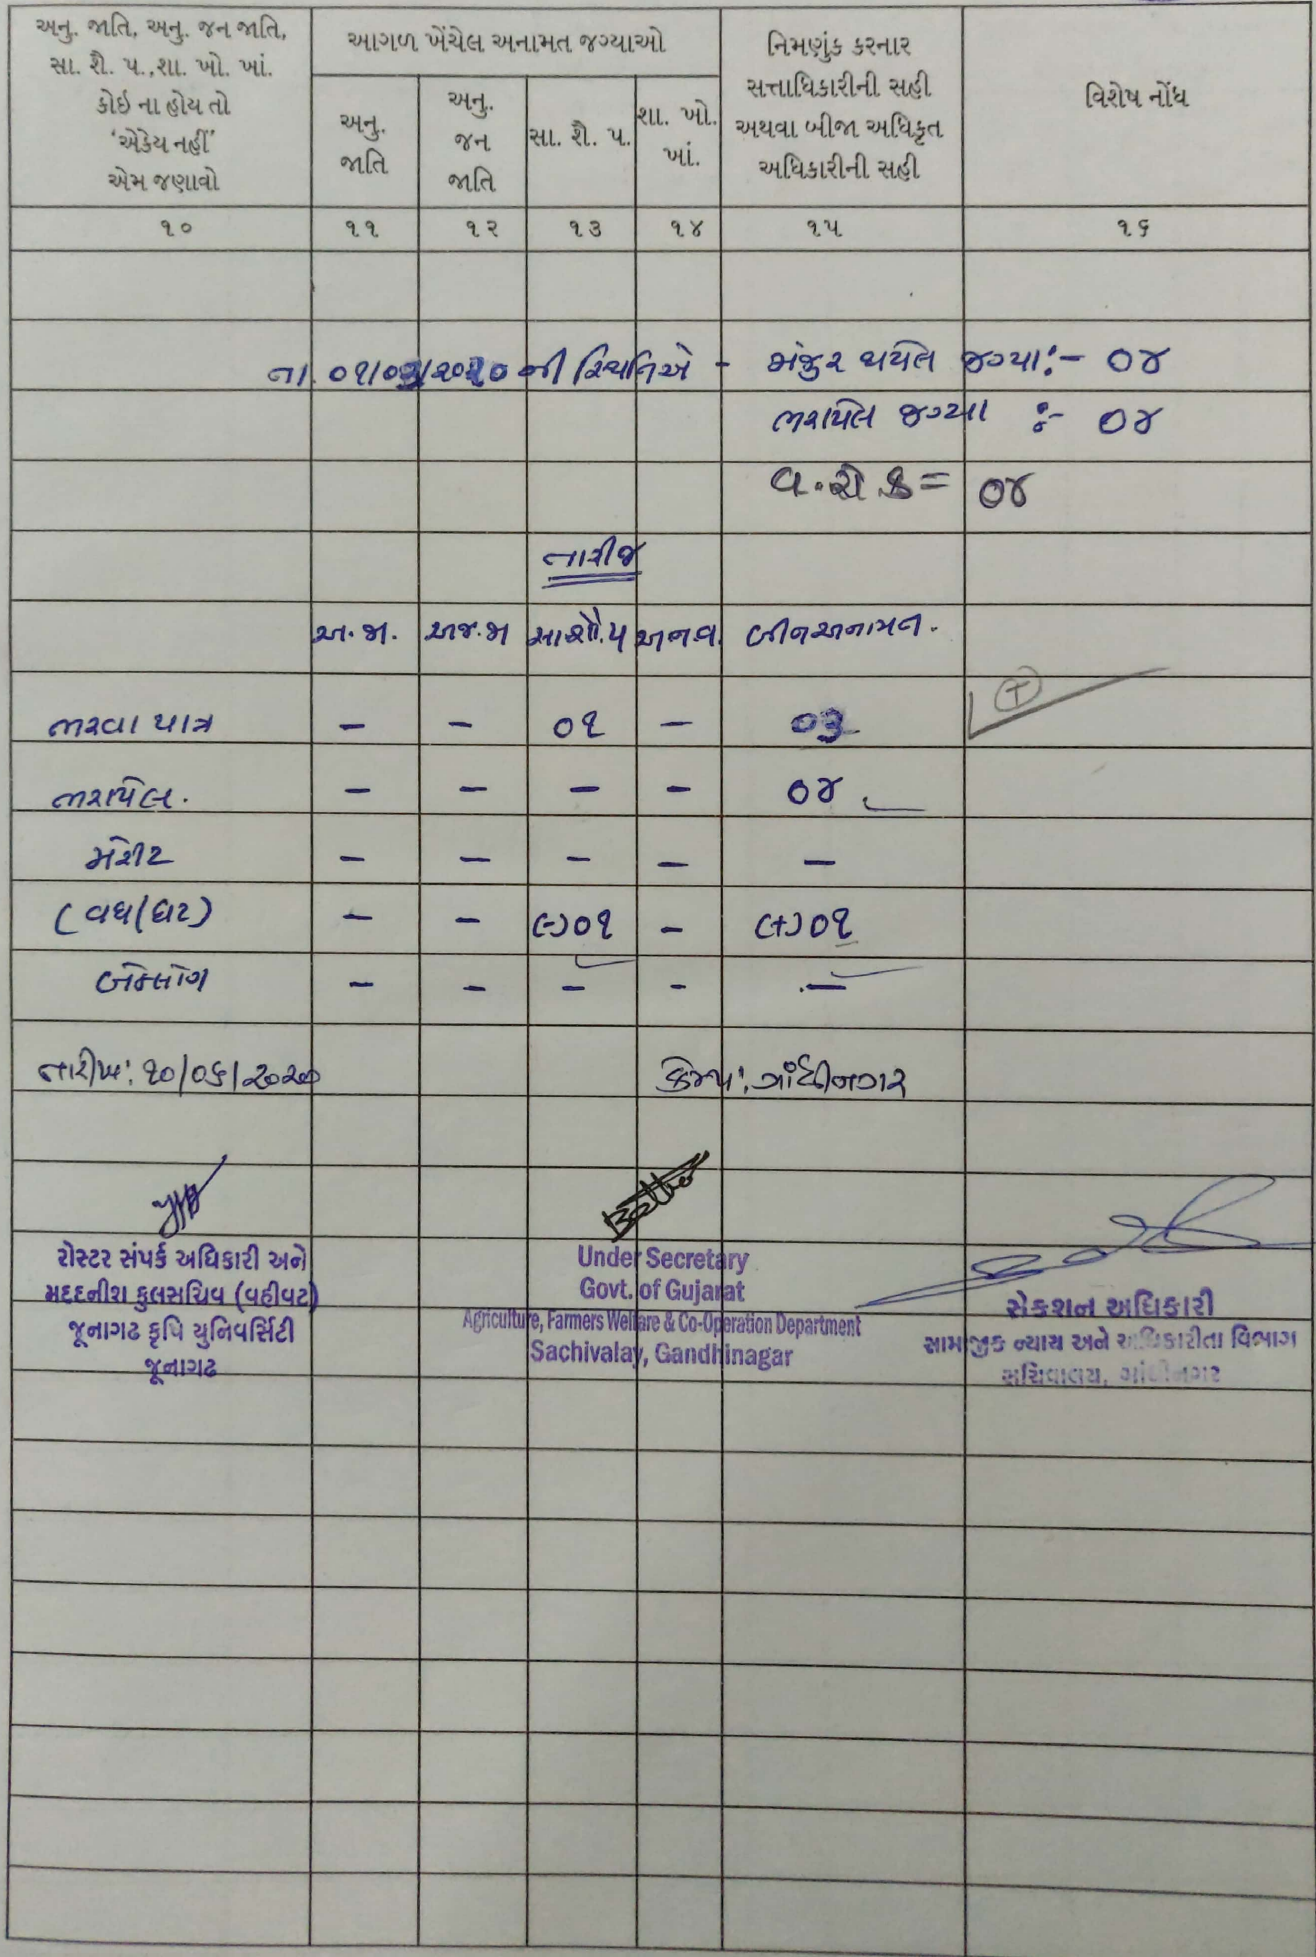 અનુ. જાતિ, અનુ. જન જાતિ,
સા. શૈ. પ.,શા. ખો. ખાં.
કોઇ ના હોય તો
'એકેય નહીં'
એમ જણાવો
આગળ ખેંચેલ અનામત જગ્યાઓ
અનુ.
જાતિ
અનુ.
જન
જાતિ
સા. શૈ. પ.
શા. ખો.
ખાં.
નિમણુંક કરનાર
સત્તાધિકારીની સહી
અથવા બીજા અધિકૃત
અધિકારીની સહી
વિશેષ નોંધ
૧૦ ૧૧ ૧૨ ૧૩ ૧૪ ૧૫ ૧૬
ની સ્થિતિએ - મંજુર થયેલ જગ્યા:- ૦૪
ભરાયેલ જગ્યા :- ૦૪
૦૪
તારીજ
અ.જા. અજ.જા સાશૈ.પ અનવ. બીનઅનામત.
ભરવા પાત્ર - - ૦૧ - ૦૩
ભરાયેલ. - - - - ૦૪
મેરીટ - - - - -
(વધ/ઘટ) - - (-)૦૧ - (+)૦૧
બેકલોગ - - - - -
તારીખ: ૧૦/૦૬/૨૦૨૦ કેમ્પ: ગાંધીનગર
રોસ્ટર સંપર્ક અધિકારી અને
મદદનીશ કુલસચિવ (વહીવટ)
જૂનાગઢ કૃષિ યુનિવર્સિટી
જૂનાગઢ
Under Secretary
Govt. of Gujarat
Agriculture, Farmers Welfare & Co-Operation Department
Sachivalay, Gandhinagar
સેકશન અધિકારી
સામાજીક ન્યાય અને અધિકારીતા વિભાગ
સચિવાલય, ગાંધીનગર